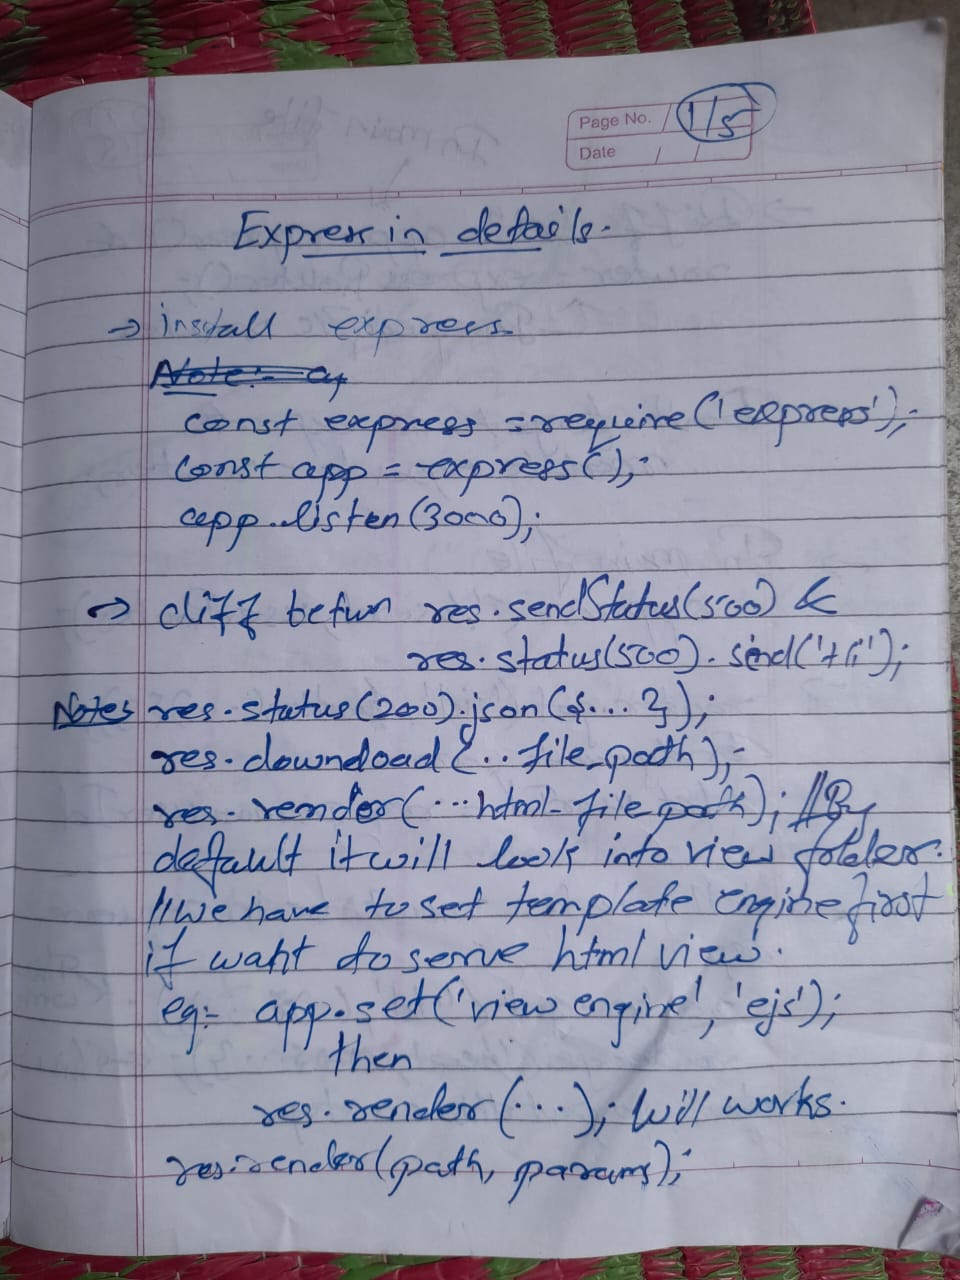 Page No. 1/5
Date / /
Express in details.
→ install express
Note:- ay
const express = require('express');
const app = express();
app.listen(3000);
→ diff betwn res.sendStatus(500) &
res.status(500).send('Hi');
Notes res.status(200).json({...});
res.download(..file_path);
res.render(...html-file path); //By
default it will look into view folder.
//We have to set template engine first
if want to serve html view.
eg:- app.set('view engine', 'ejs');
then
res.render(...); will works.
res.render(path, params);